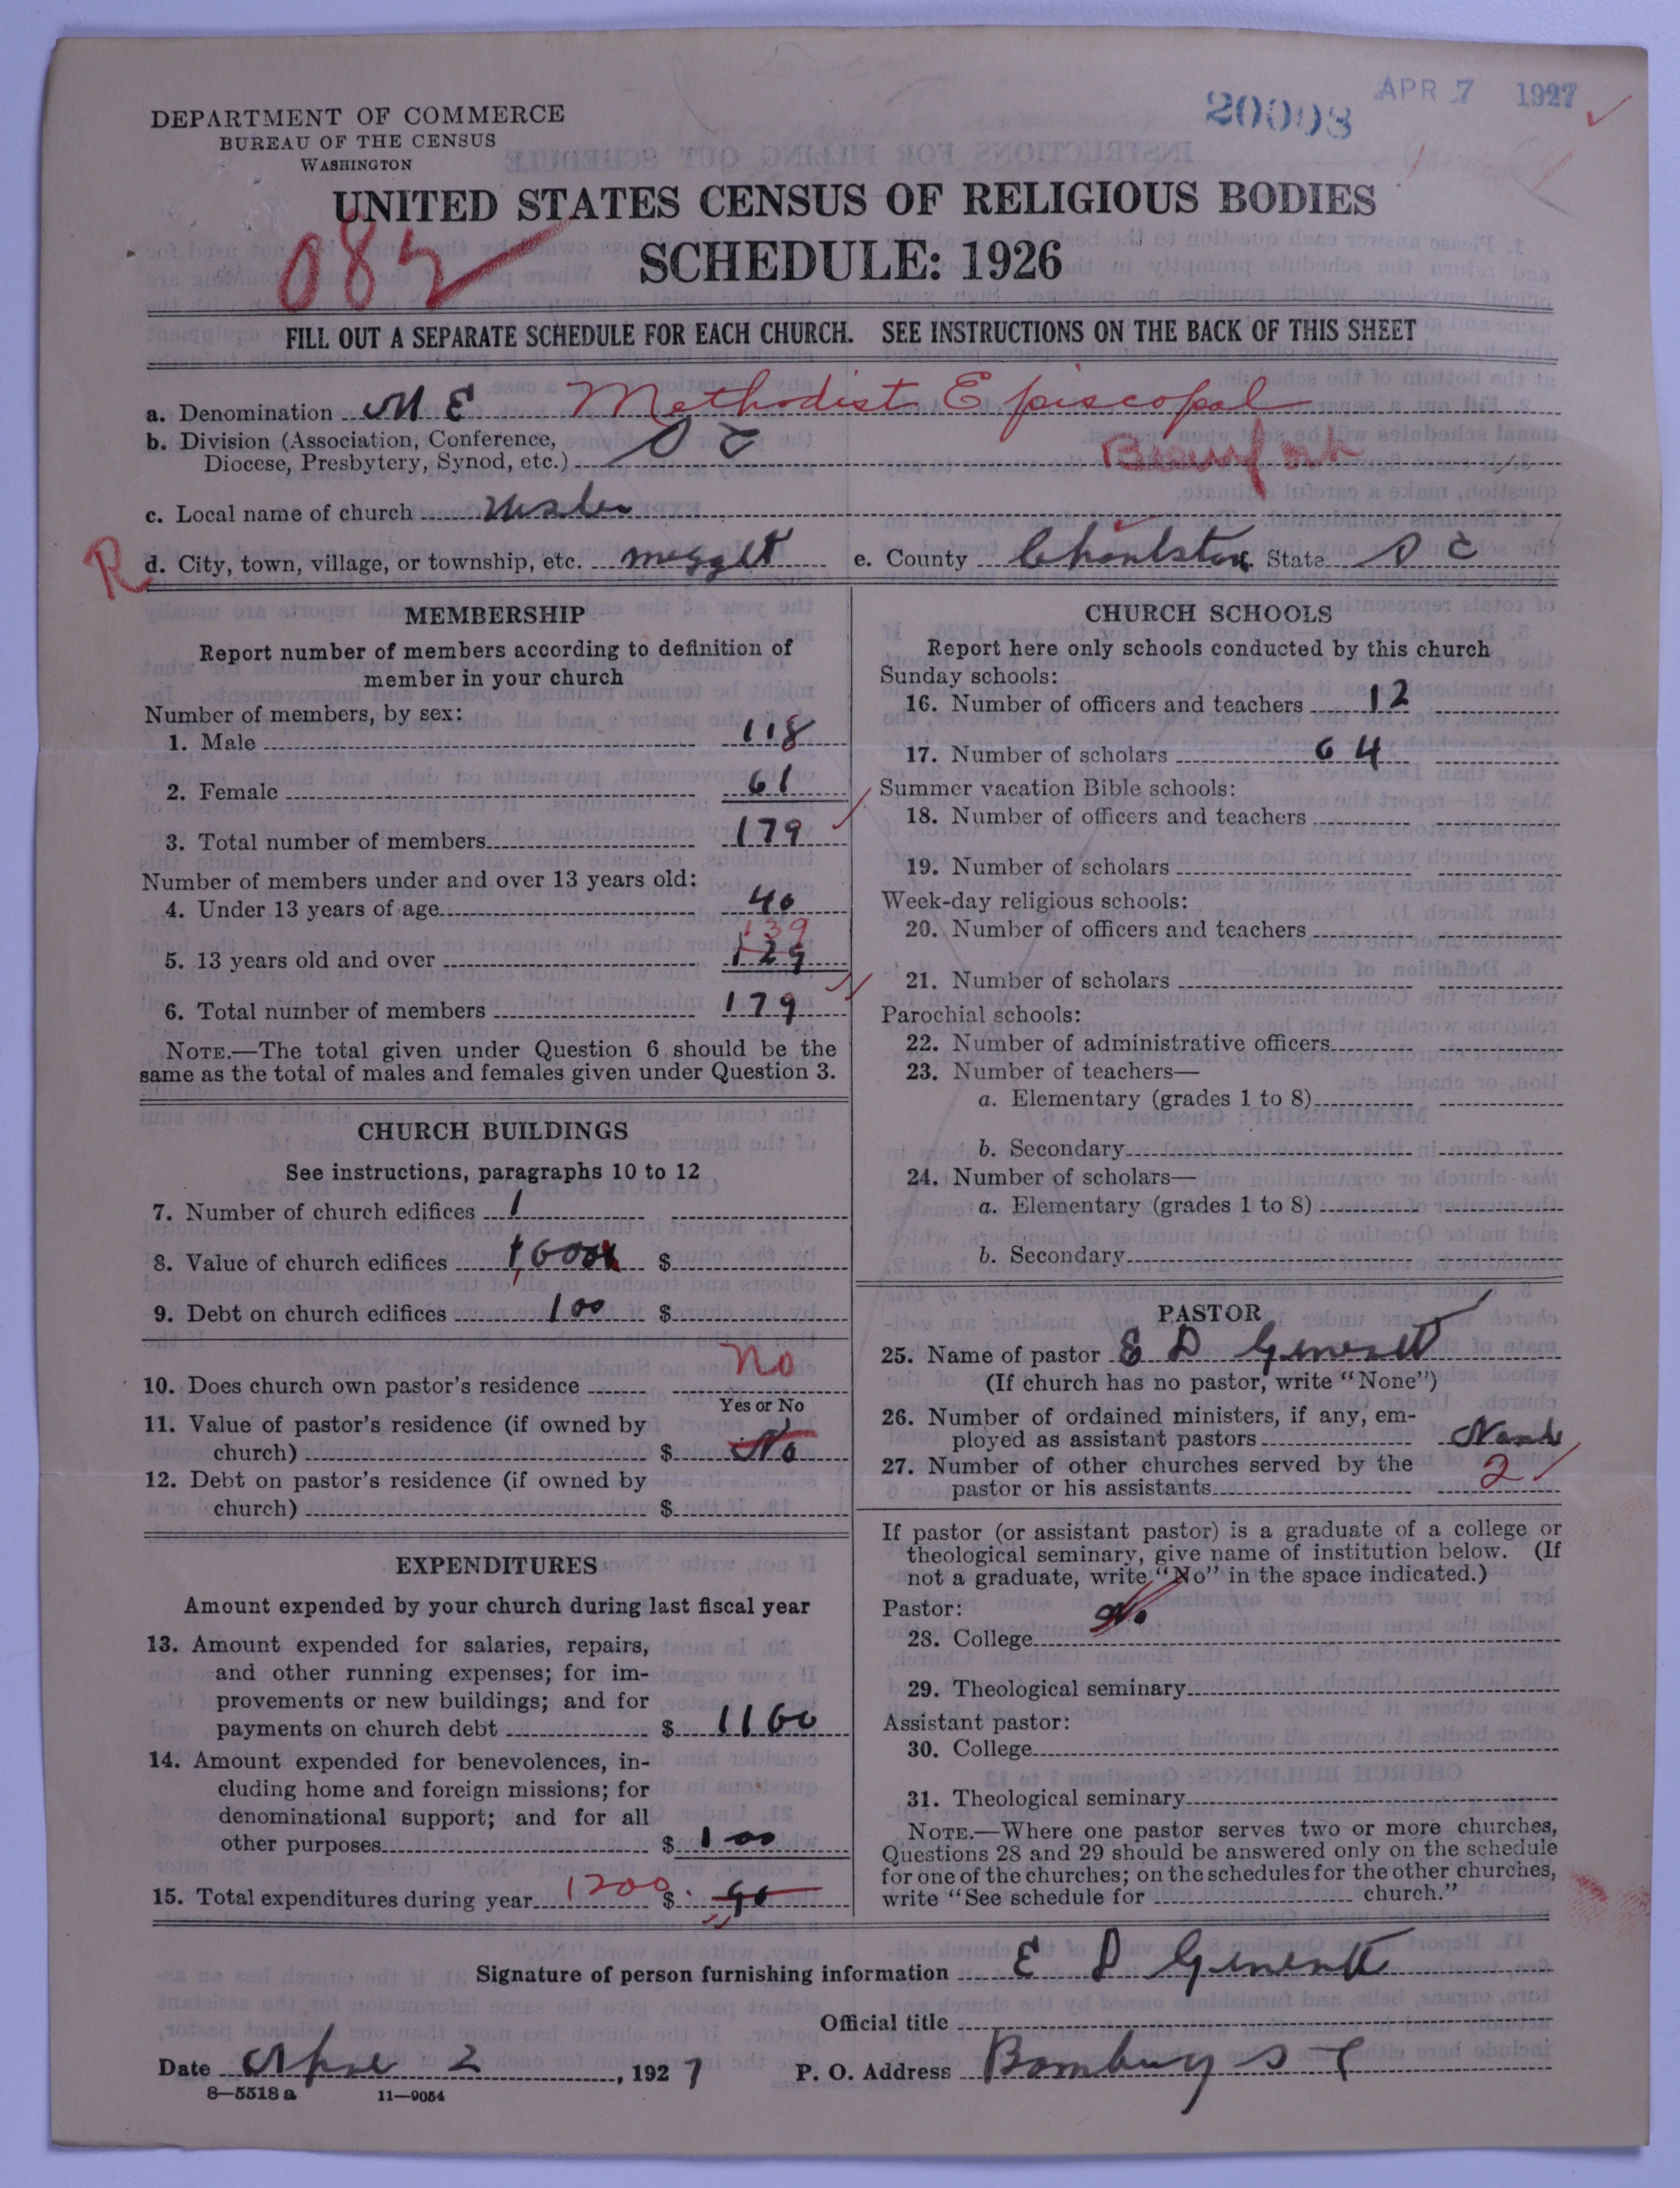 DEPARTMENT OF COMMERCE
BUREAU OF THE CENSUS
WASHINGTON
20008
APR 7 1927
UNITED STATES CENSUS OF RELIGIOUS BODIES
SCHEDULE: 1926
082
FILL OUT A SEPARATE SCHEDULE FOR EACH CHURCH. SEE INSTRUCTIONS ON THE BACK OF THIS SHEET
a. Denomination M E Methodist Episcopal
b. Division (Association, Conference,
Diocese, Presbytery, Synod, etc.) S C Beaufort
c. Local name of church
R d. City, town, village, or township, etc. meggett e. County Charleston State S C
MEMBERSHIP
Report number of members according to definition of
member in your church
Number of members, by sex:
1. Male 118
2. Female 61
3. Total number of members 179
Number of members under and over 13 years old:
4. Under 13 years of age 40
139
5. 13 years old and over 129
6. Total number of members 179
NOTE.—The total given under Question 6 should be the
same as the total of males and females given under Question 3.
CHURCH BUILDINGS
See instructions, paragraphs 10 to 12
7. Number of church edifices 1
8. Value of church edifices $
9. Debt on church edifices 100 $
10. Does church own pastor's residence No
Yes or No
11. Value of pastor's residence (if owned by
church) $ No
12. Debt on pastor's residence (if owned by
church) $
EXPENDITURES
Amount expended by your church during last fiscal year
13. Amount expended for salaries, repairs,
and other running expenses; for im-
provements or new buildings; and for
payments on church debt $ 1100
14. Amount expended for benevolences, in-
cluding home and foreign missions; for
denominational support; and for all
other purposes $ 100
15. Total expenditures during year 1200 $
CHURCH SCHOOLS
Report here only schools conducted by this church
Sunday schools:
16. Number of officers and teachers 12
17. Number of scholars 64
Summer vacation Bible schools:
18. Number of officers and teachers
19. Number of scholars
Week-day religious schools:
20. Number of officers and teachers
21. Number of scholars
Parochial schools:
22. Number of administrative officers
23. Number of teachers—
a. Elementary (grades 1 to 8)
b. Secondary
24. Number of scholars—
a. Elementary (grades 1 to 8)
b. Secondary
PASTOR
25. Name of pastor E D
(If church has no pastor, write "None")
26. Number of ordained ministers, if any, em-
ployed as assistant pastors
27. Number of other churches served by the
pastor or his assistants 2
If pastor (or assistant pastor) is a graduate of a college or
theological seminary, give name of institution below. (If
not a graduate, write "No" in the space indicated.)
Pastor: No
28. College
29. Theological seminary
Assistant pastor:
30. College
31. Theological seminary
NOTE.—Where one pastor serves two or more churches,
Questions 28 and 29 should be answered only on the schedule
for one of the churches; on the schedules for the other churches,
write "See schedule for church."
Signature of person furnishing information E D
Official title
Date 2, 1927 P. O. Address S C
8—5518 a 11—9054